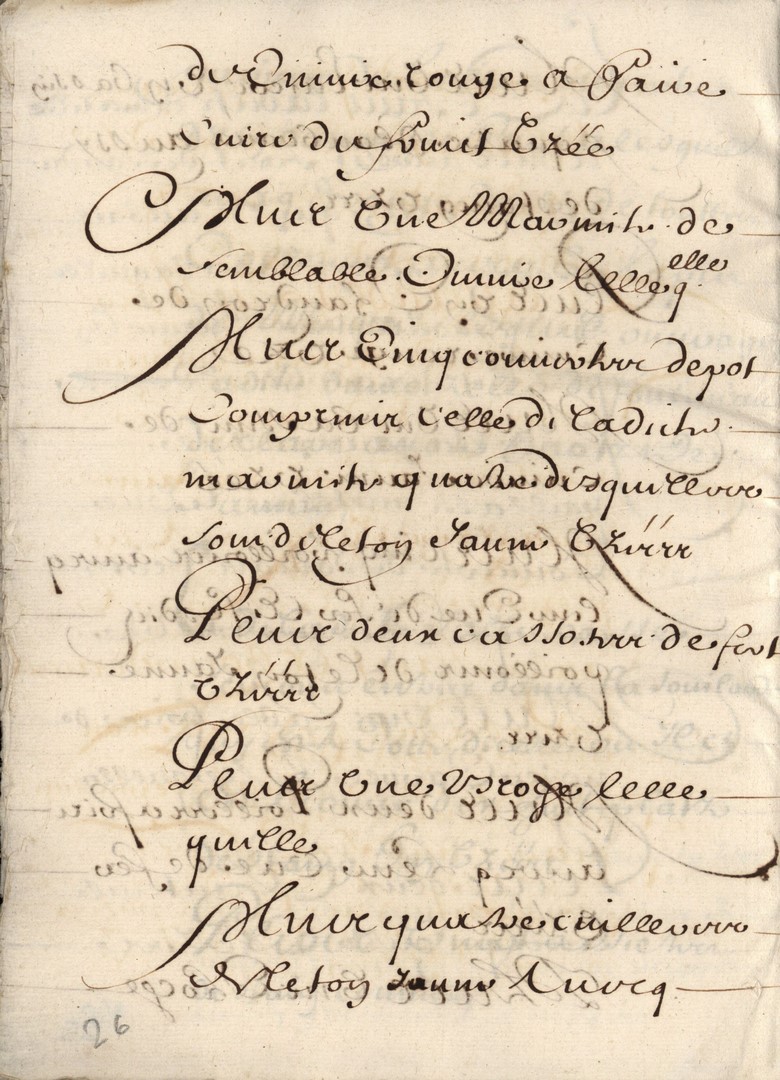 de Cuiure rouge a faire
Cuire du fruit Uzée
Plus Une Marmite de
semblable Cuiure telle
elle
q.
Plus Cinq couuertes de pot
Compremis Celle de ladicte
marmite quatre desquelles
son de leton Jaune Uzées
Plus deux cassottes de fert
Uzées
Plus Une Broche telle
quelle
Plus quatre cuilleres
de leton Jaune Auecq
26